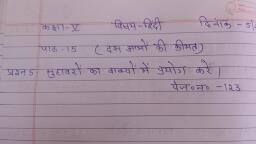 कक्षा-V विषय-हिंदी दिनांक-
पाठ-15 (दस आमों की कीमत)
प्रश्न5. मुहावरों का वाक्यों में प्रयोग करें।
पेज॰न॰-123